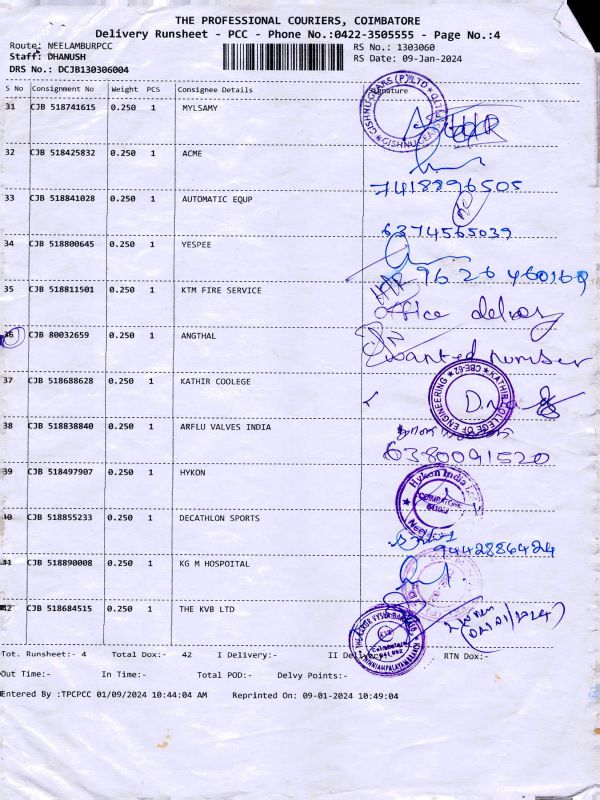 THE PROFESSIONAL COURIERS, COIMBATORE
Delivery Runsheet - PCC - Phone No.:0422-3505555 - Page No.:4
Route: NEELAMBURPCC RS No.: 1303060
Staff: DHANUSH RS Date: 09-Jan-2024
DRS No.: DCJB130306004
S No Consignment No Weight PCS Consignee Details Signature
31 CJB 518741615 0.250 1 MYLSAMY
32 CJB 518425832 0.250 1 ACME
7418896505
33 CJB 518841028 0.250 1 AUTOMATIC EQUP
6374565039
34 CJB 518800645 0.250 1 YESPEE
9626460160
35 CJB 518811501 0.250 1 KTM FIRE SERVICE
office delvry
36 CJB 80032659 0.250 1 ANGTHAL
wanted number
37 CJB 518688628 0.250 1 KATHIR COOLEGE
KATHIR COLLEGE OF ENGINEERING CBE-62
38 CJB 518838840 0.250 1 ARFLU VALVES INDIA
6380091520
39 CJB 518497907 0.250 1 HYKON
Hykon India
COIMBATORE
40 CJB 518855233 0.250 1 DECATHLON SPORTS
9442886424
41 CJB 518890008 0.250 1 KG M HOSPOITAL
42 CJB 518684515 0.250 1 THE KVB LTD
Tot. Runsheet:- 4 Total Dox:- 42 I Delivery:- II Delivery:- RTN Dox:-
Out Time:- In Time:- Total POD:- Delvy Points:-
Entered By :TPCPCC 01/09/2024 10:44:04 AM Reprinted On: 09-01-2024 10:49:04